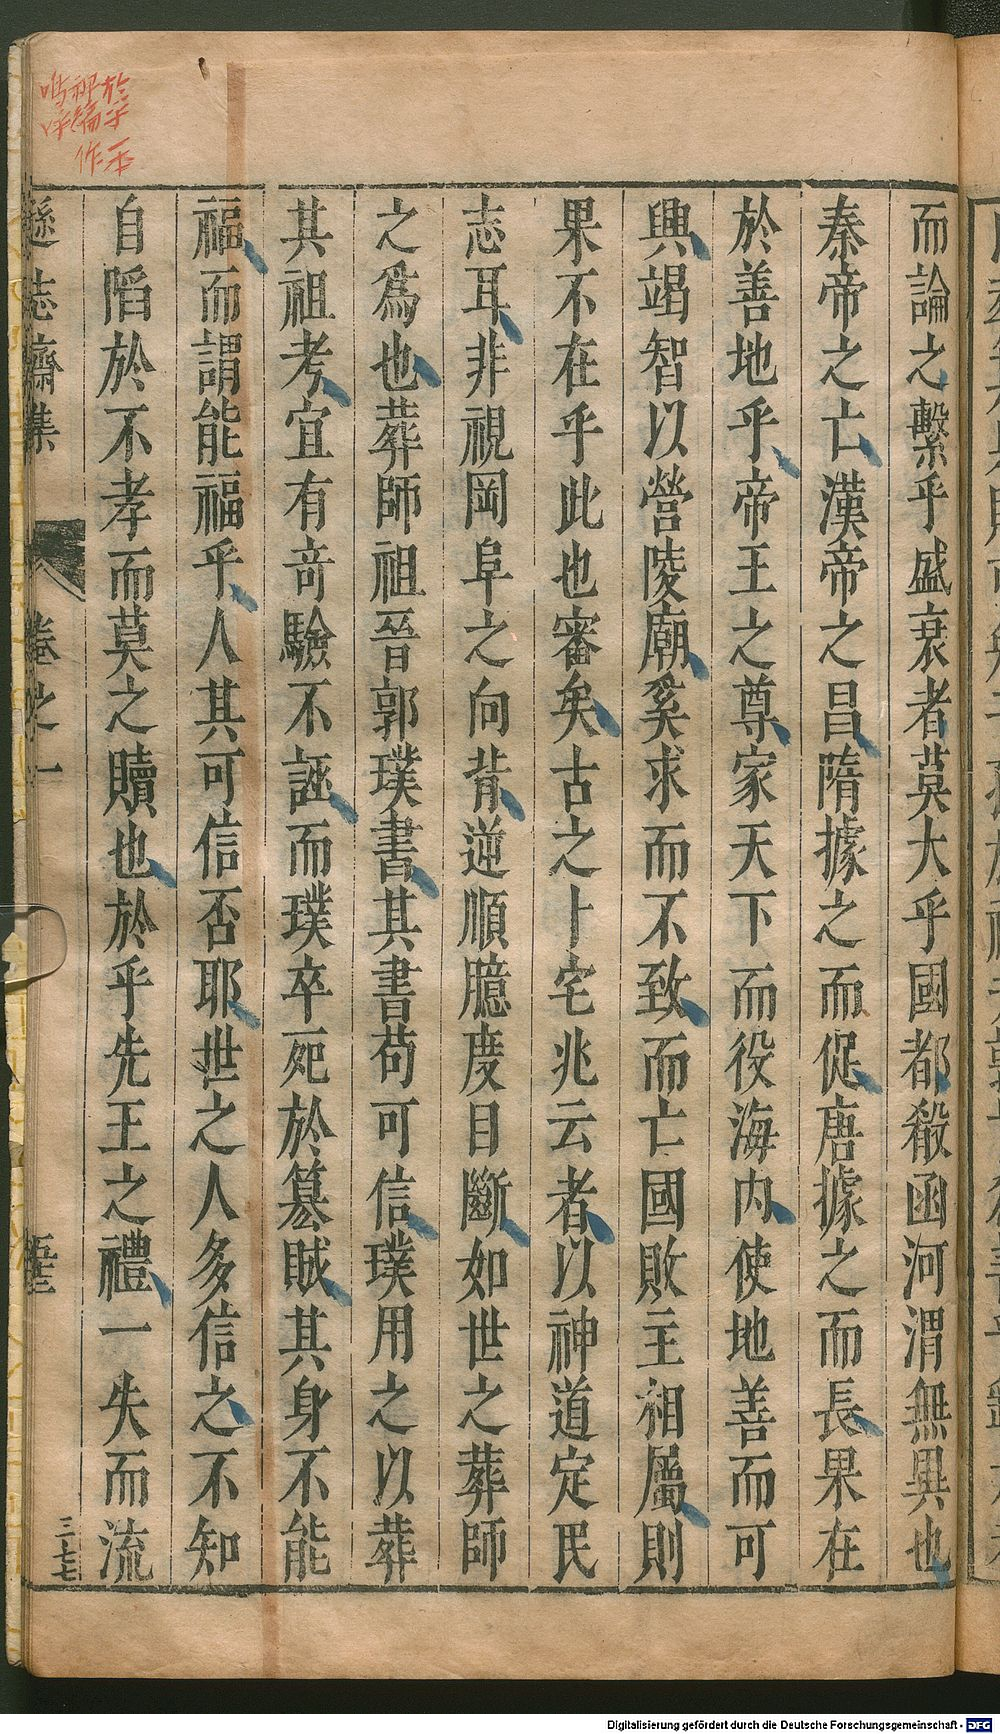 而論之繫乎盛衰者莫大乎國都殽函河渭無異也
秦帝之亡漢帝之昌隋據之而促唐據之而長果在
於善地乎帝王之尊家天下而役海內使地善而可
興竭智以營陵廟奚求而不致而亡國敗主相屬則
果不在乎此也審矣古之卜宅兆云者以神道定民
志耳非視岡阜之向背逆順臆度目斷如世之葬師
之爲也葬師祖晉郭璞書其書苟可信璞用之以葬
其祖考宜有奇驗不誣而璞卒死於簒賊其身不能
福而謂能福乎人其可信否耶世之人多信之不知
自陷於不孝而莫之贖也於乎先王之禮一失而流
遜志齋集
卷之一
三七七
於乎一本
神編作
嗚呼
Digitalisierung gefördert durch die Deutsche Forschungsgemeinschaft - DFG